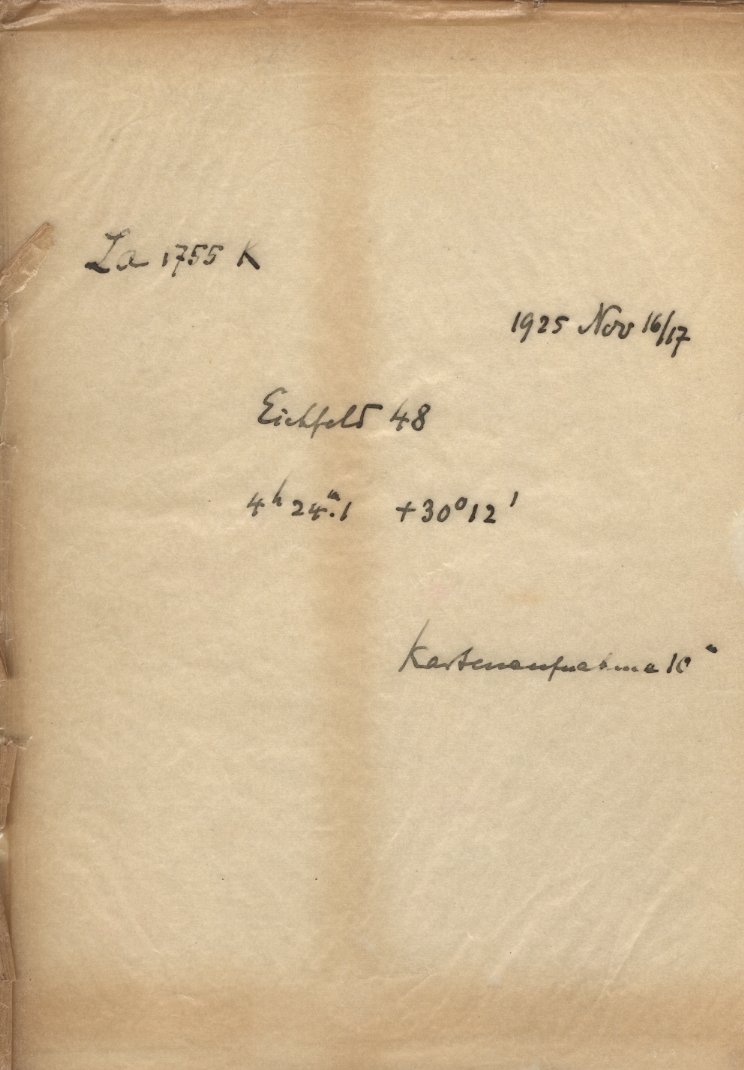 La 1755 K
1925 Nov 16/17
Eichfeld 48
4ʰ 24ᵐ.1 +30°12'
Kartenaufnahme 10ᵐ